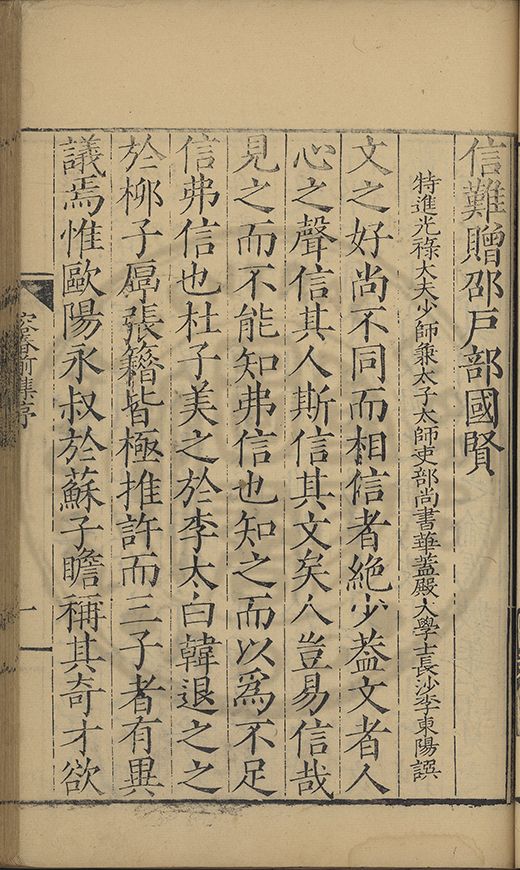 信難贈邵戶部國賢
特進光祿大夫少師兼太子太師吏部尚書華蓋殿大學士長沙李東陽譔
文之好尚不同而相信者絶少葢文者人
心之聲信其人斯信其文矣人豈易信哉
見之而不能知弗信也知之而以爲不足
信弗信也杜子美之於李太白韓退之之
於柳子厚張籍皆極推許而三子者有異
議焉惟歐陽永叔於蘇子瞻稱其奇才欲
容春前集序
一